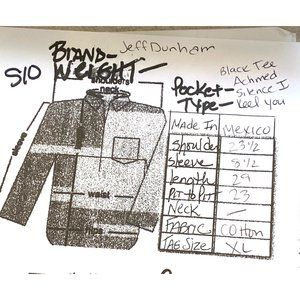 BRAND- Jeff Dunham
S10 WEIGHT-
shoulders
neck
Pocket-
TYPE-
Black Tee
Achmed
Silence I
Keel you
sleeve
waist
hips
Made In MEXICO
Shoulder 23 1/2
Sleeve 8 1/2
length 29
PIT to PIT 23
Neck —
FABRIC COTTON
TAG SIZE XL